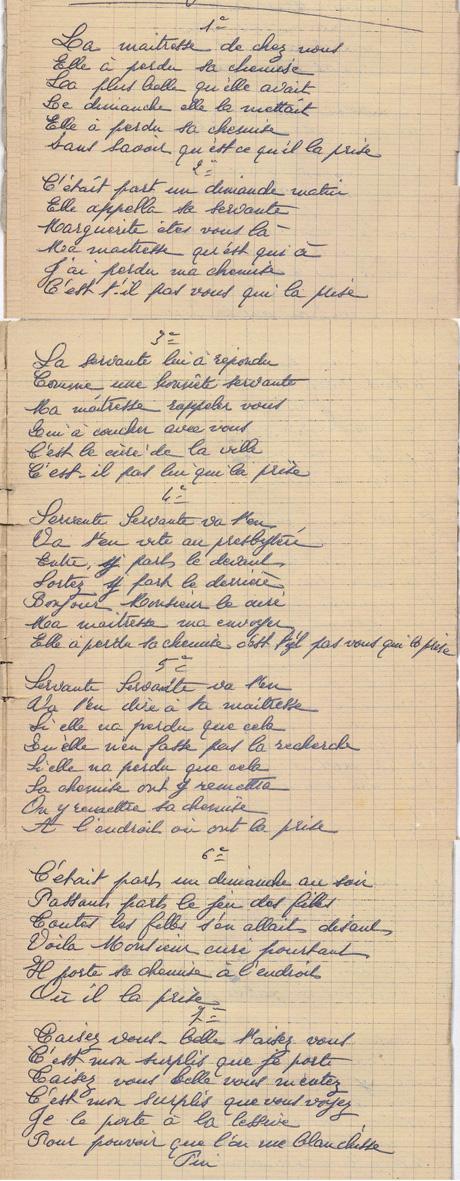 1e
La maitresse de chez nous
Elle à perdu sa chemise
La plus belle qu'elle avait
Le dimanche elle la mettait
Elle à perdu sa chemise
Sans savoir qu'est ce qu'il la prise
2e
C'était part un dimande matin
Elle appella sa servante
Marguerite êtes vous la
Ma maitresse qu'est qui à
J'ai perdu ma chemise
C'est t-il pas vous qui la prise
3e
La servante lui à répondu
Comme une honnête servante
Ma maitresse rappeler vous
Qui à coucher avec vous
C'est le curé de la ville
C'est-il pas lui qui la prise
4e
Servante Servante va t'en
Va t'en vite au presbytère
Entre, y parts le devant
Sortez y part le derrière
Bonjour Monsieur le curé
Ma maitresse ma envoyer
Elle à perdu sa chemise c'est t'il pas vous qui la prise
5e
Servante Servante va t'en
Va t'en dire à ta maitresse
Si elle na perdu que cela
Qu'elle n'en fasse pas la recherche
Si elle na perdu que cela
Sa chemise ont y remettra
On y remettra sa chemise
A l'endroit où ont la prise
6e
C'était parts un dimanche au soir
Passant parts le jeu des filles
Toutes les filles s'en allait disant
Voila Monsieur curé pourtant
Il porte sa chemise à l'endroit
Où il la prise
7e
Taisez vous belle t'aisez vous
C'est mon surplis que je porte
Taisez vous belle vous mentez
C'est mon surplis que vous voyez
Je le porte à la lessive
Pour pouvoir que l'on me blanchisse
Fin